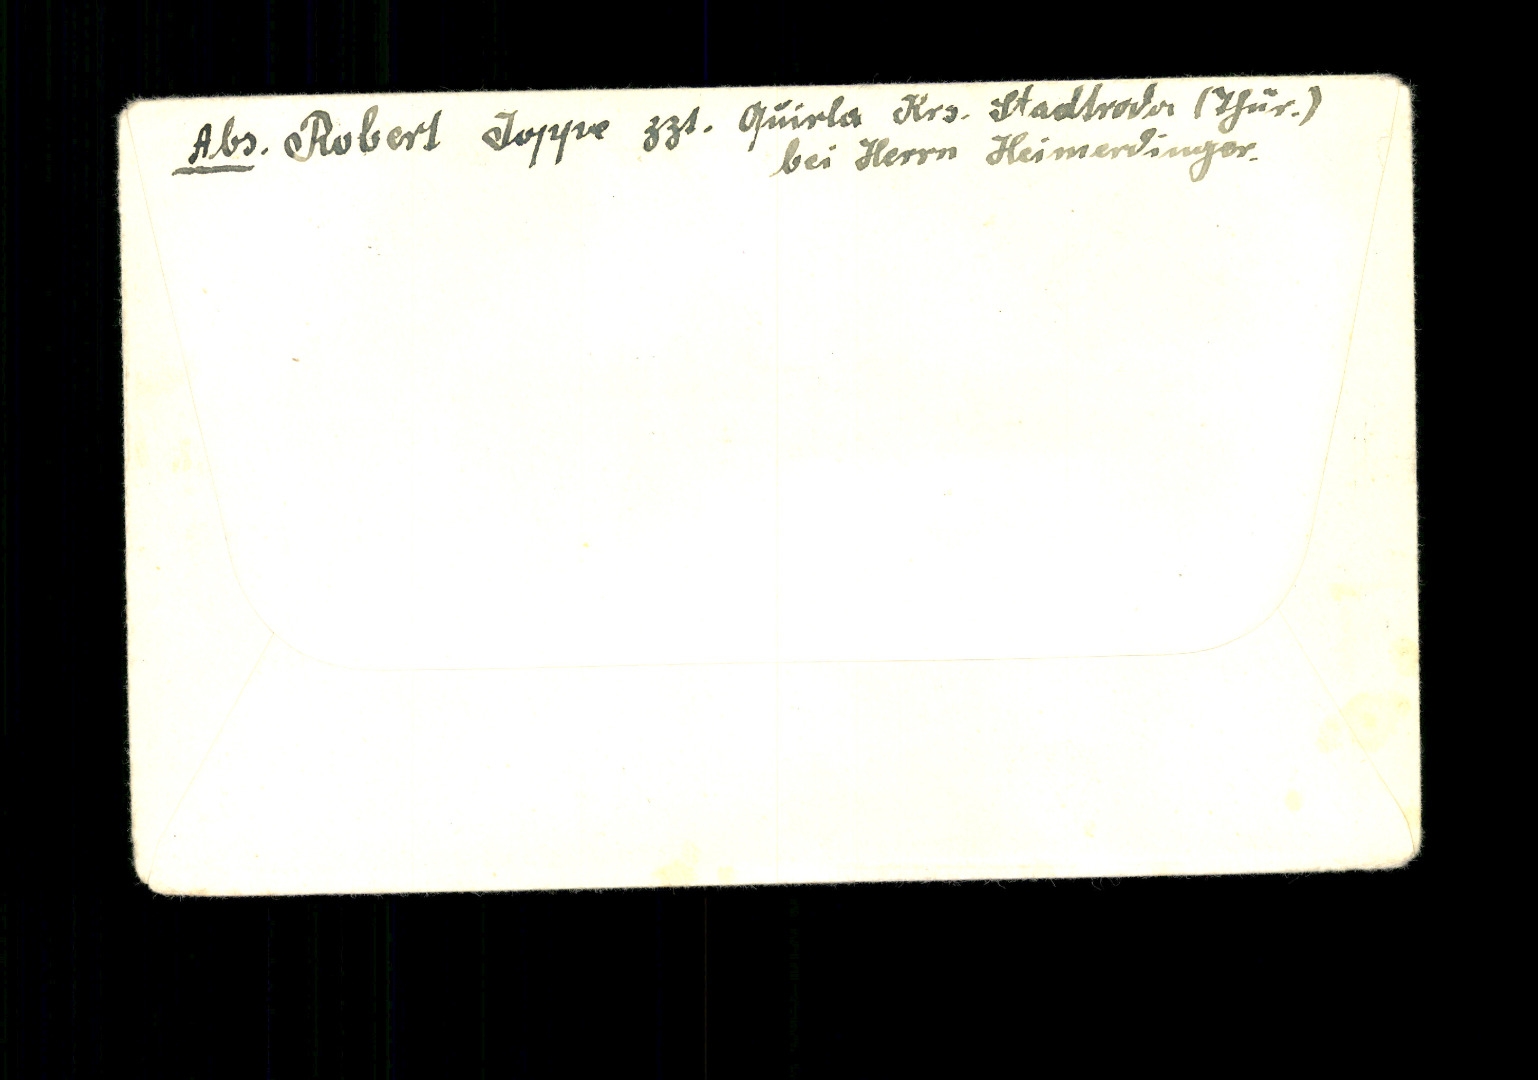 Abs. Robert Joppe zzt. Quirla Krs. Stadtroda (Thür.)
bei Herrn Heimerdinger.